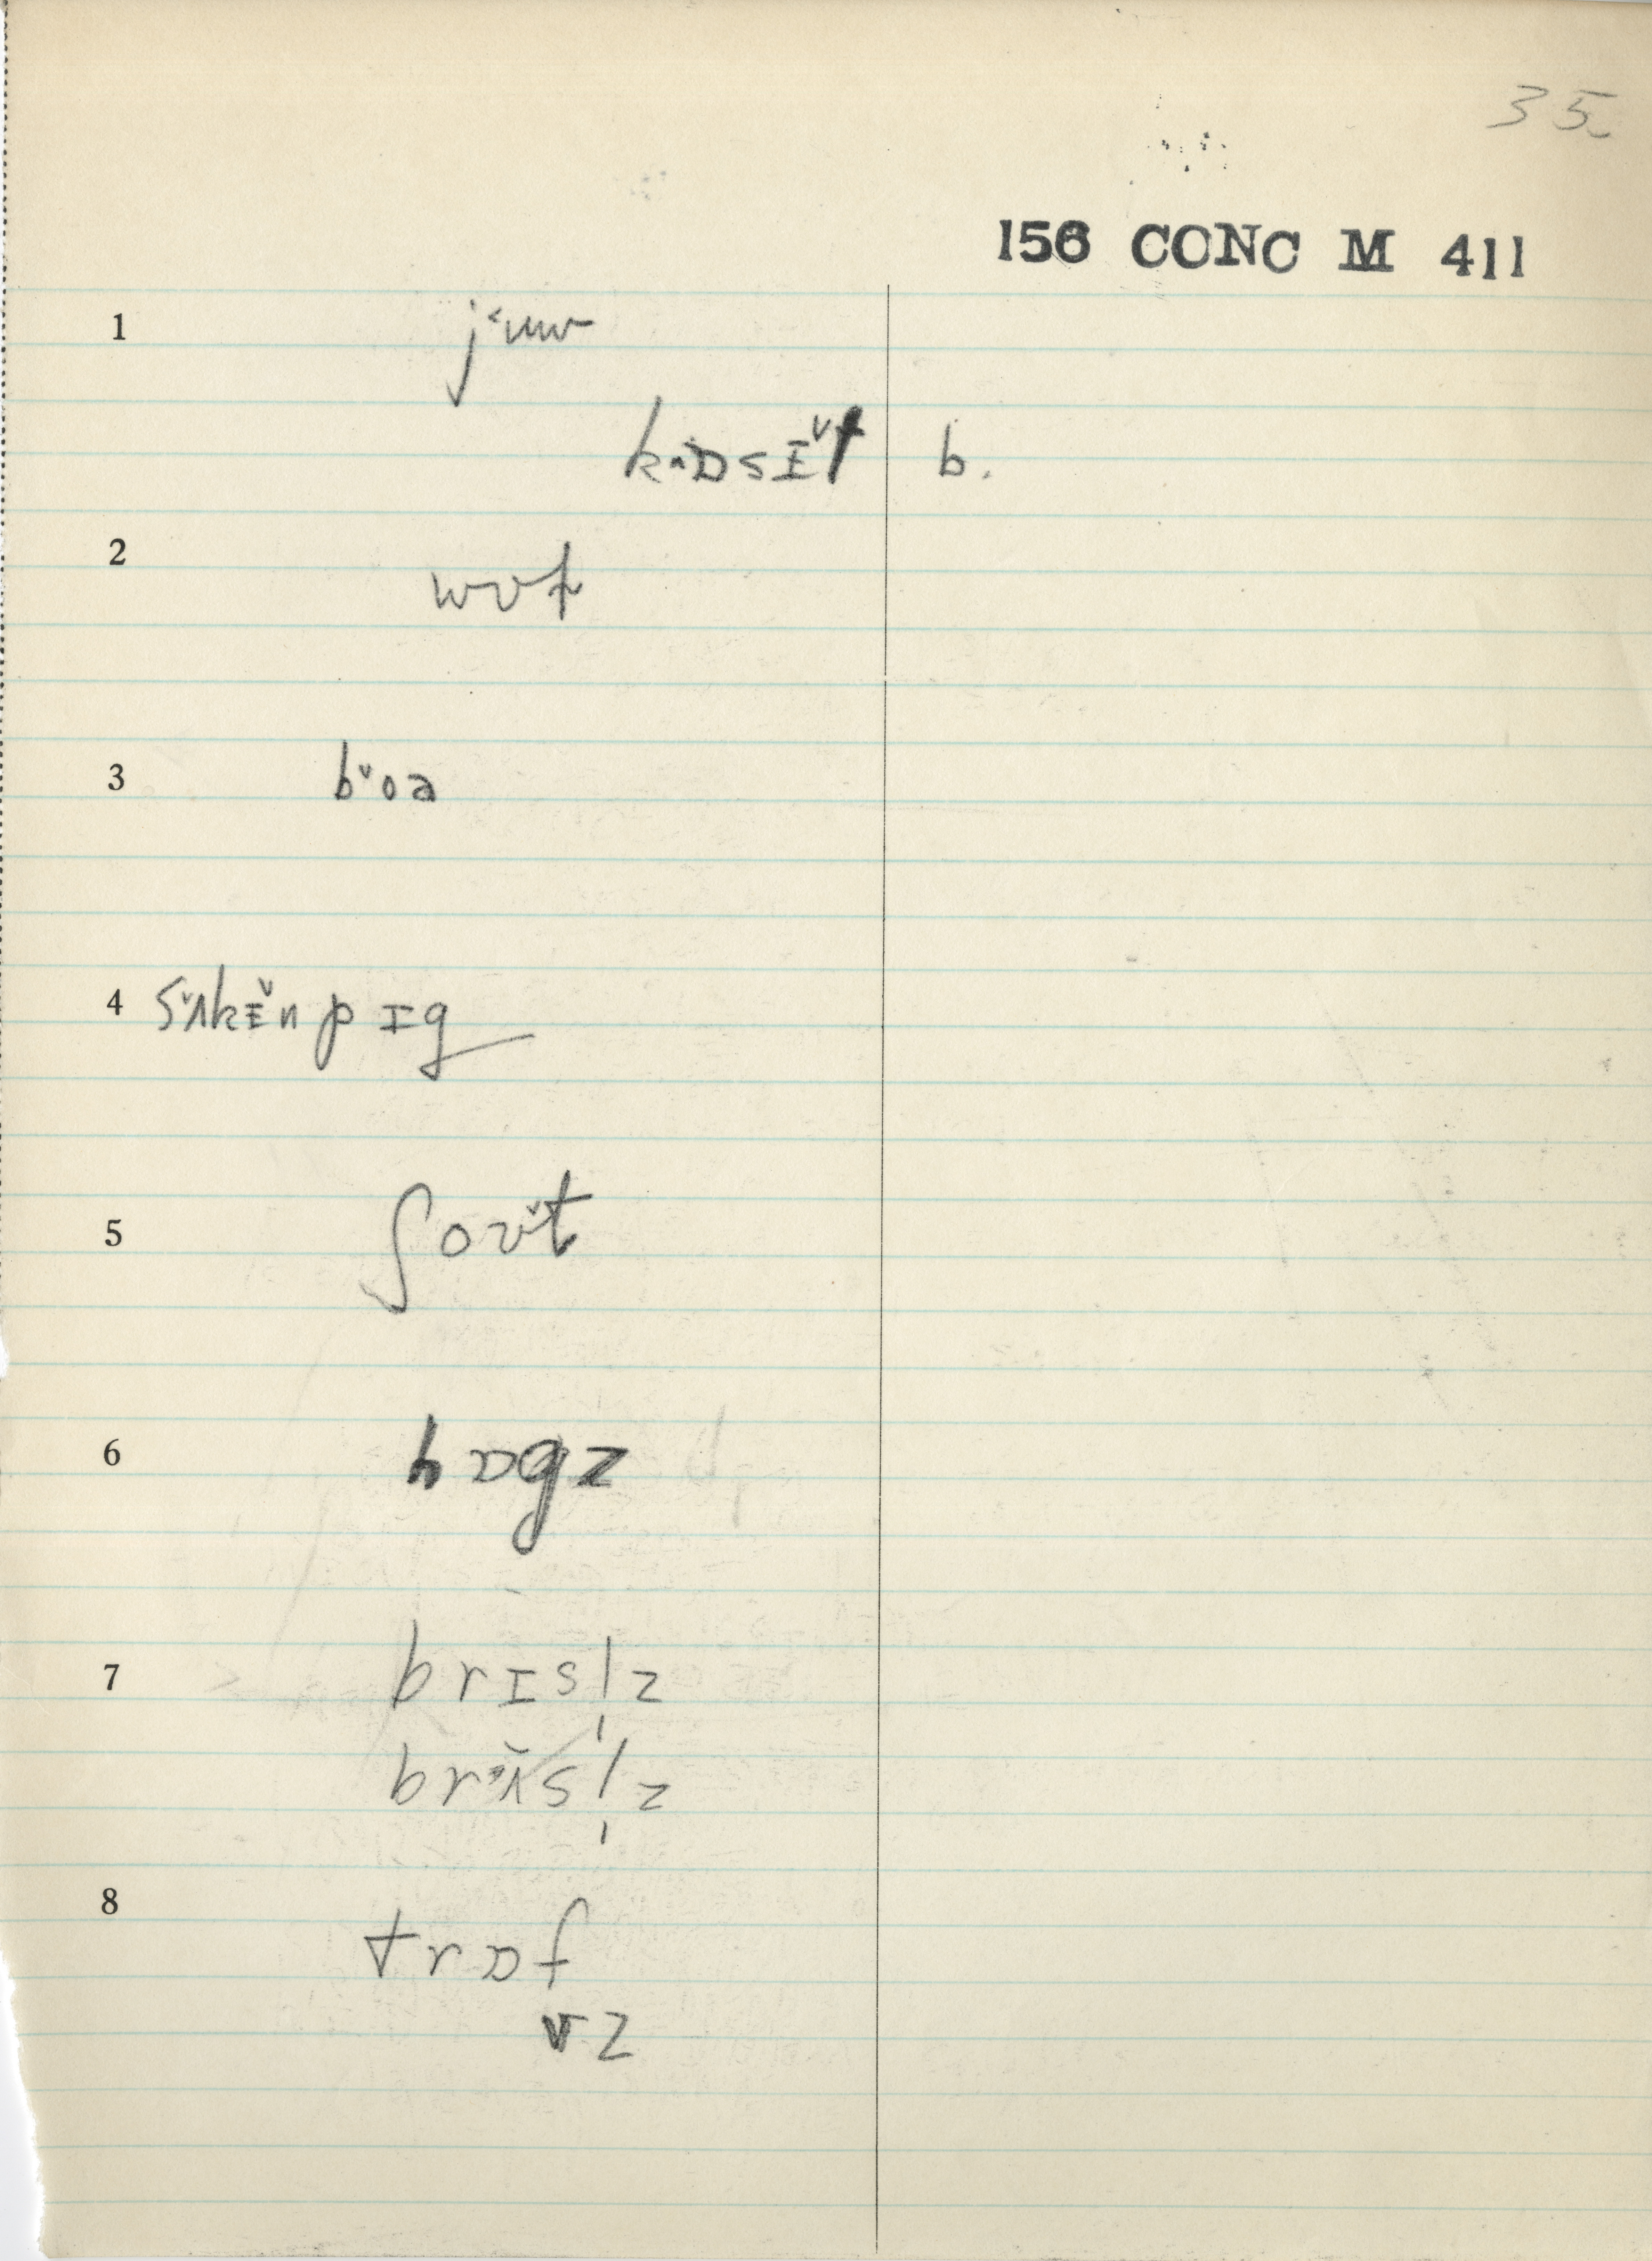 35.
156 CONC M 411
1 j˂uw
kɒsɪ̆t b.
2 wʊt
3 b˅oə
4 sʌkɪ̆n pɪg
5 ʃoʊ̆t
6 hɒgz
7 brɪsl̩z
brʌ̆sl̩z
8 trɒf
vz